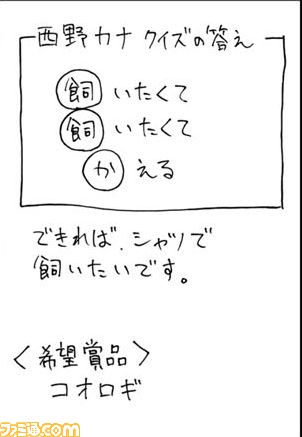 西野カナ クイズの答え
飼いたくて
飼いたくて
かえる
できれば、シャツで
飼いたいです。
<希望賞品>
コオロギ
ファミ通.com